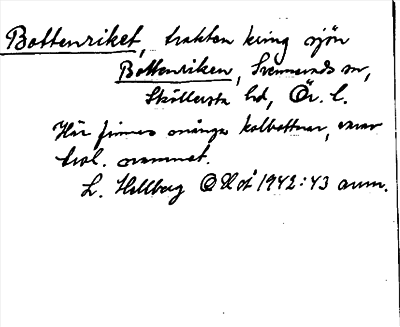 Bottenriket, trakten kring sjön
Bottenriken, Svennevads sn,
Sköllersta hd, Ör. l.
Här finnes många kolbottnar, varav
trol. namnet.
L. Hellberg 1942:43 anm.